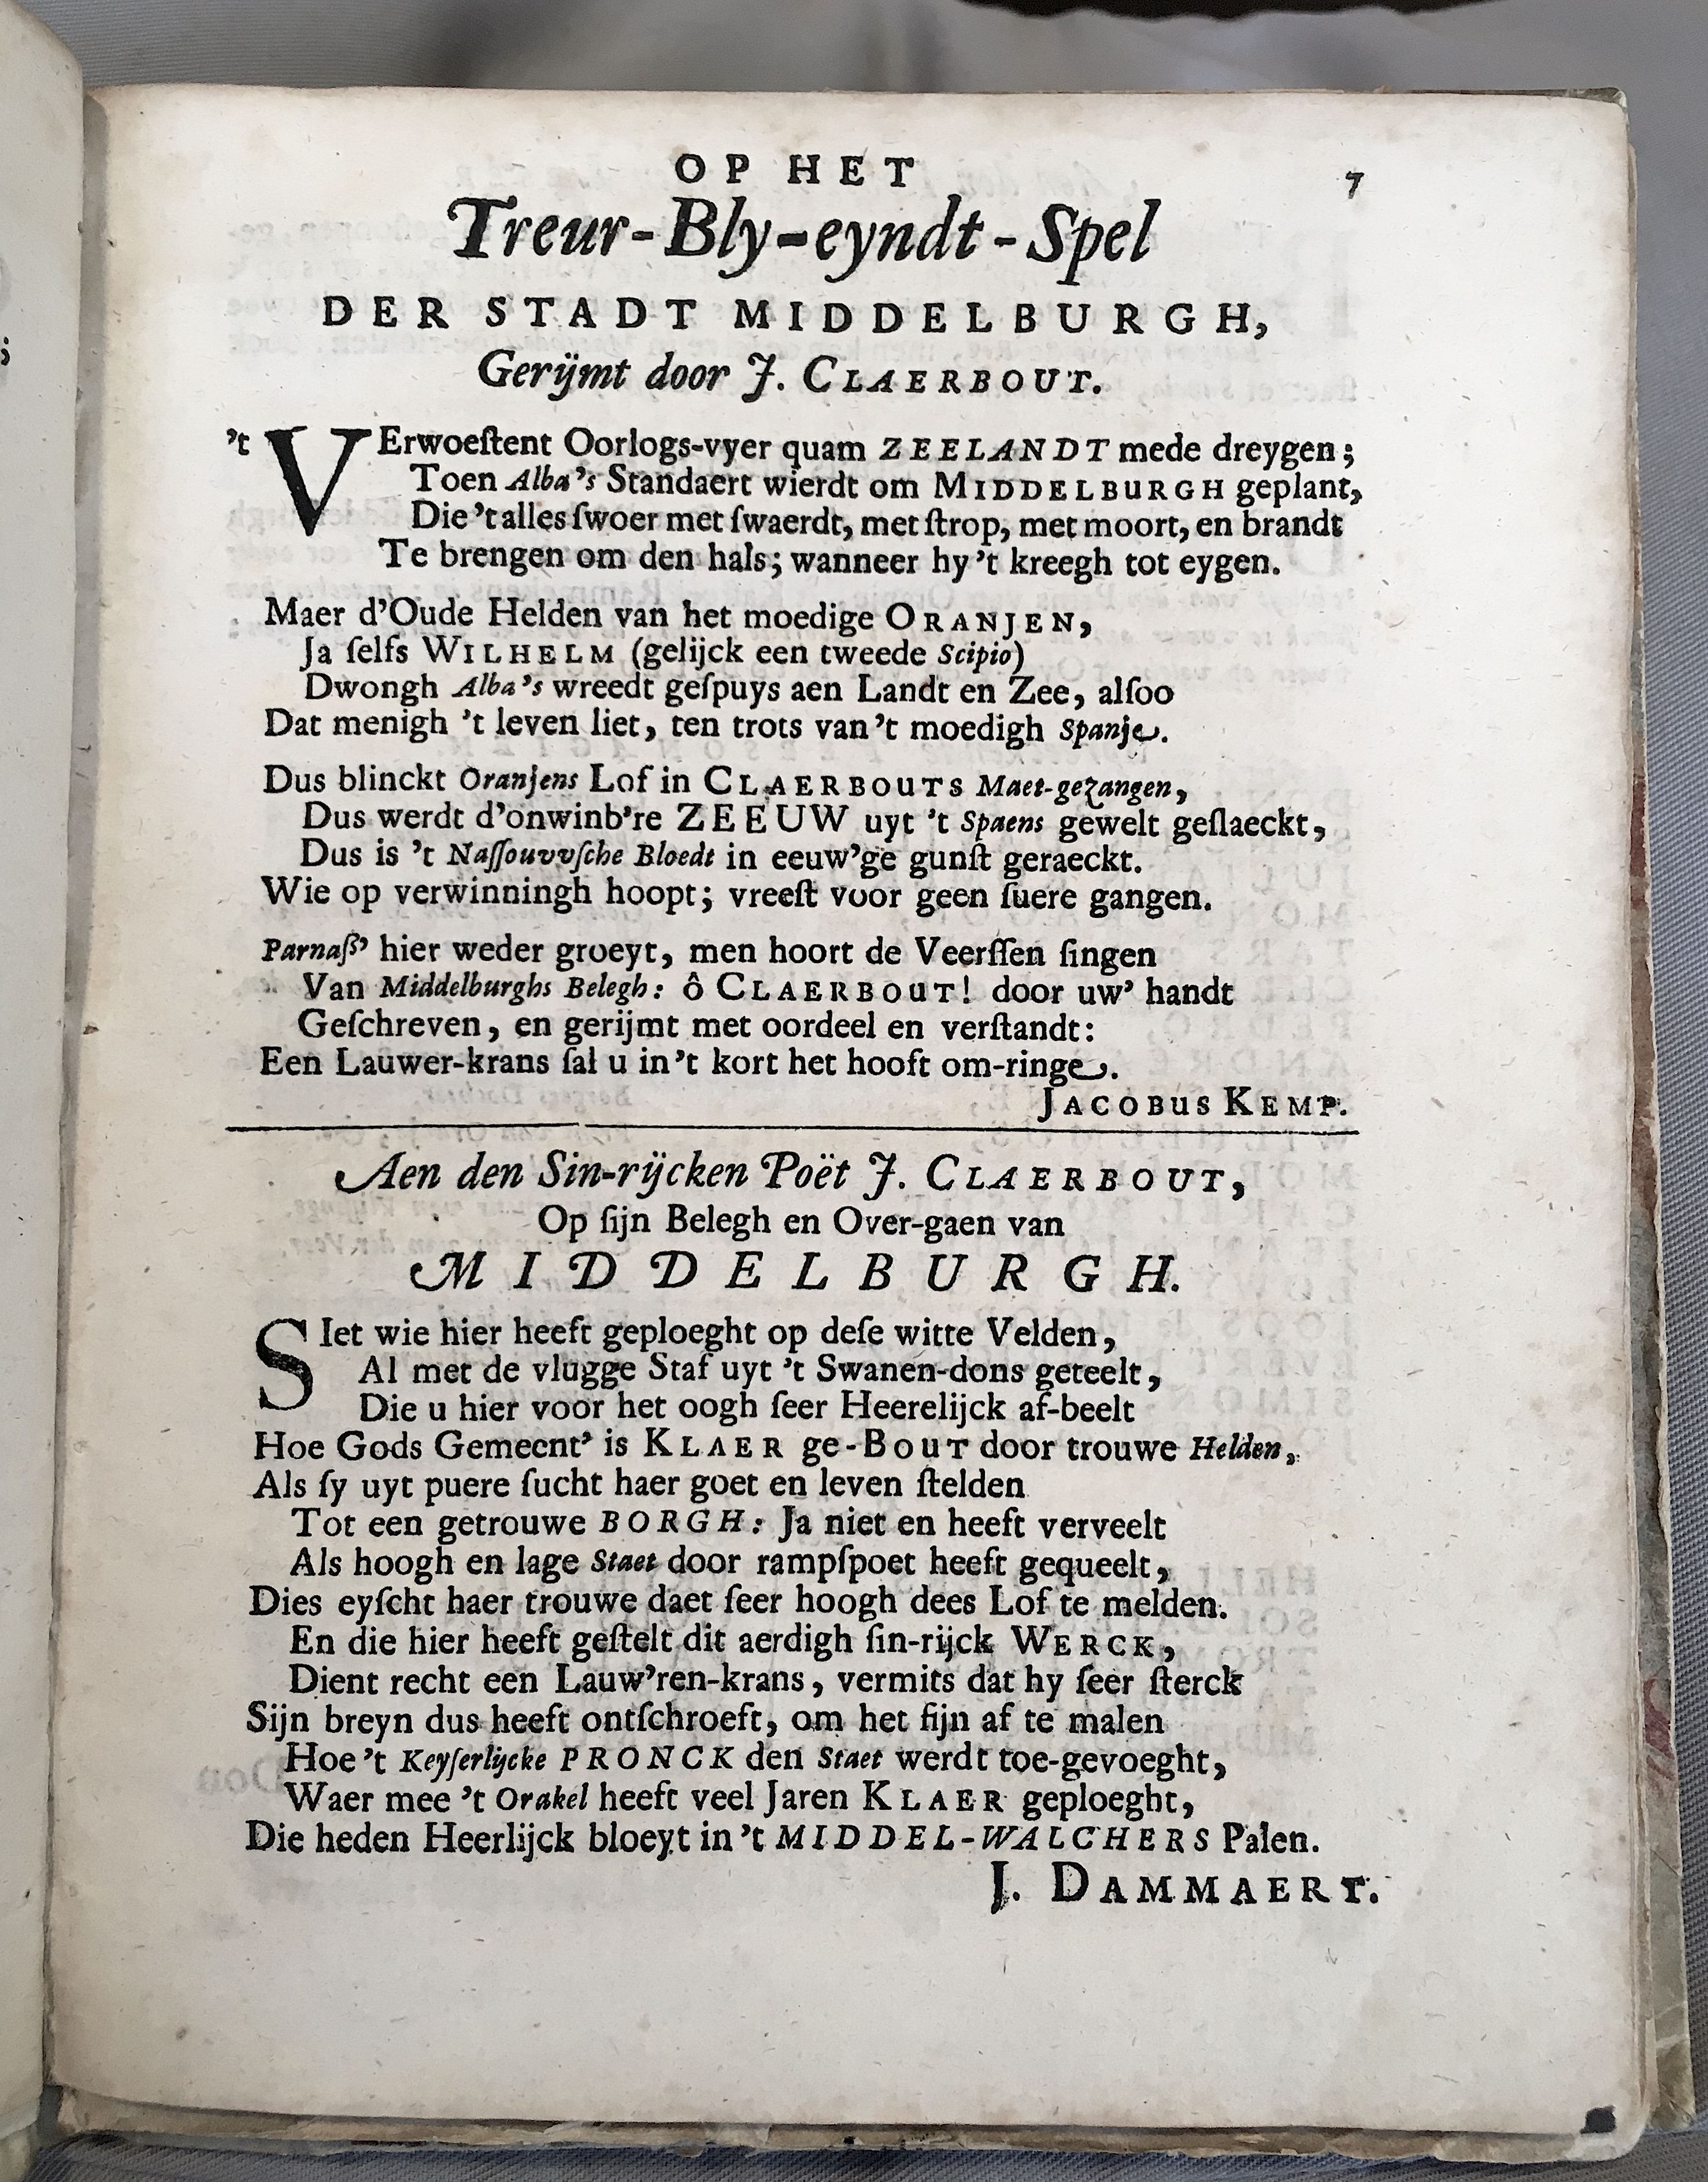 7
OP HET
Treur-Bly-eyndt-Spel
DER STADT MIDDELBURGH,
Gerijmt door J. CLAERBOUT.
’t VErwoeſtent Oorlogs-vyer quam ZEELANDT mede dreygen;
Toen Alba’s Standaert wierdt om MIDDELBURGH geplant,
Die ’t alles ſwoer met ſwaerdt, met ſtrop, met moort, en brandt
Te brengen om den hals; wanneer hy ’t kreegh tot eygen.
Maer d’Oude Helden van het moedige ORANJEN,
Ja ſelfs WILHELM (gelijck een tweede Scipio)
Dwongh Alba’s wreedt geſpuys aen Landt en Zee, alſoo
Dat menigh ’t leven liet, ten trots van ’t moedigh Spanje.
Dus blinckt Oranjens Lof in CLAERBOUTS Maet-gezangen,
Dus werdt d’onwinb’re ZEEUW uyt ’t Spaens gewelt geſlaeckt,
Dus is ’t Naſſouvvſche Bloedt in eeuw’ge gunſt geraeckt.
Wie op verwinningh hoopt; vreeſt voor geen ſuere gangen.
Parnaß’ hier weder groeyt, men hoort de Veerſſen ſingen
Van Middelburghs Belegh: ô CLAERBOUT! door uw’ handt
Geſchreven, en gerijmt met oordeel en verſtandt:
Een Lauwer-krans ſal u in ’t kort het hooft om-ringe.
JACOBUS KEMP.
Aen den Sin-rijcken Poët J. CLAERBOUT,
Op ſijn Belegh en Over-gaen van
MIDDELBURGH.
SIet wie hier heeft geploeght op deſe witte Velden,
Al met de vlugge Staf uyt ’t Swanen-dons geteelt,
Die u hier voor het oogh ſeer Heerelijck af-beelt
Hoe Gods Gemeent’ is KLAER ge-BOUT door trouwe Helden,
Als ſy uyt puere ſucht haer goet en leven ſtelden
Tot een getrouwe BORGH: Ja niet en heeft verveelt
Als hoogh en lage Staet door rampſpoet heeft gequeelt,
Dies eyſcht haer trouwe daet ſeer hoogh dees Lof te melden.
En die hier heeft geſtelt dit aerdigh ſin-rijck WERCK,
Dient recht een Lauw’ren-krans, vermits dat hy ſeer ſterck
Sijn breyn dus heeft ontſchroeft, om het fijn af te malen
Hoe ’t Keyſerlijcke PRONCK den Staet werdt toe-gevoeght,
Waer mee ’t Orakel heeft veel Jaren KLAER geploeght,
Die heden Heerlijck bloeyt in ’t MIDDEL-WALCHERS Palen.
J. DAMMAERT.